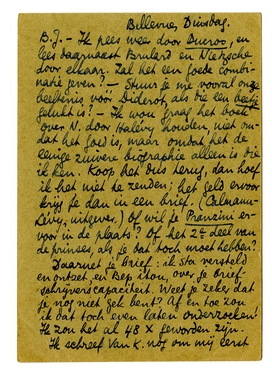 Bellevue, Dinsdag.
B.J. – Ik lees weer door Ducros, en
lees daarnaast Brulard en Nietzsche
door elkaar. Zal het een goede combi-
natie geven? – Stuur je me vooral onze
beeltenis voor Diderot, als die een beetje
gelukt is? – Ik wou graag het boek
over N. door Halévy houden, niet om-
dat het goed is, maar omdat het de
eenige zuivere biographie alleen is die
ik ken. Koop het dus terug, dan hoef
ik het niet te zenden; het geld ervoor
krijg je dan in een brief. (Calmann-
Lévy, uitgever.) Of wil je Pranzini er-
voor in de plaats? Of het 2e deel van
de prinses, als je dat toch moet hebben?
Daarnet je brief: ik sta versteld
en ontzet en diep, over je brief-
schrijverscapaciteit. Weet je zeker dat
je nog niet gek bent? Af en toe zou
ik dat toch even laten onderzoeken!
Ik zou het al 48 x geworden zijn.
Ik schreef Van K. nog om mij eerst